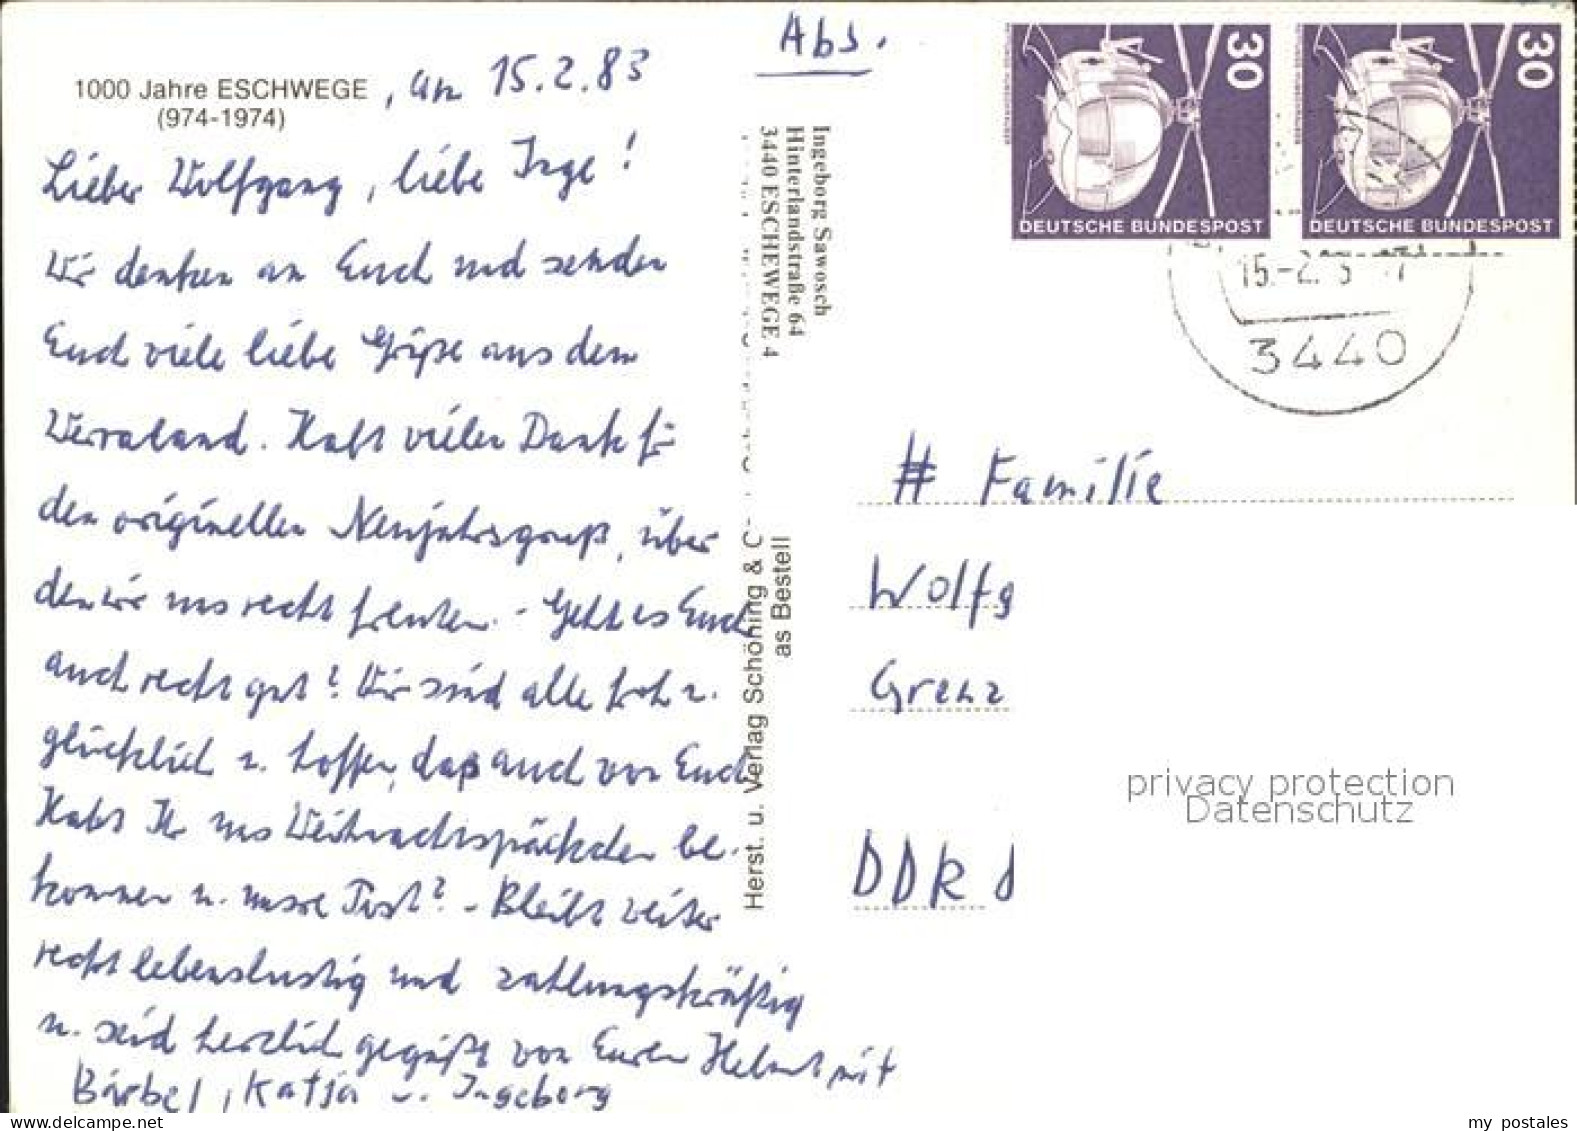 1000 Jahre ESCHWEGE, am 15.2.83
(974-1974)
Lieber Wolfgang, liebe Inge!
Wir denken an Euch und senden
Euch viele liebe Grüße aus dem
Werraland. Habt vielen Dank für
den originellen Neujahrsgruß, über
den wir uns recht freuten. - Geht es Euch
auch recht gut? Wir sind alle froh u.
glücklich u. hoffen, daß auch von Euch
Habt Ihr uns Weihnachtspäckchen be-
kommen u. unsre Post? - Bleibt weiter
recht lebenslustig und zahlungskräftig
u. seid herzlich gegrüßt von Euren Helmut mit
Bärbel, Katja u. Ingeborg
Abs.
Ingeborg Sawosch
Hinterlandstraße 64
3440 ESCHEWEGE 4
Herst. u. Verlag Schöning & C
as Bestell
30
DEUTSCHE BUNDESPOST
30
DEUTSCHE BUNDESPOST
15.-2.
3440
# Familie
Wolfg
Grenz
DDR
privacy protection
Datenschutz
www.delcampe.net
my postales